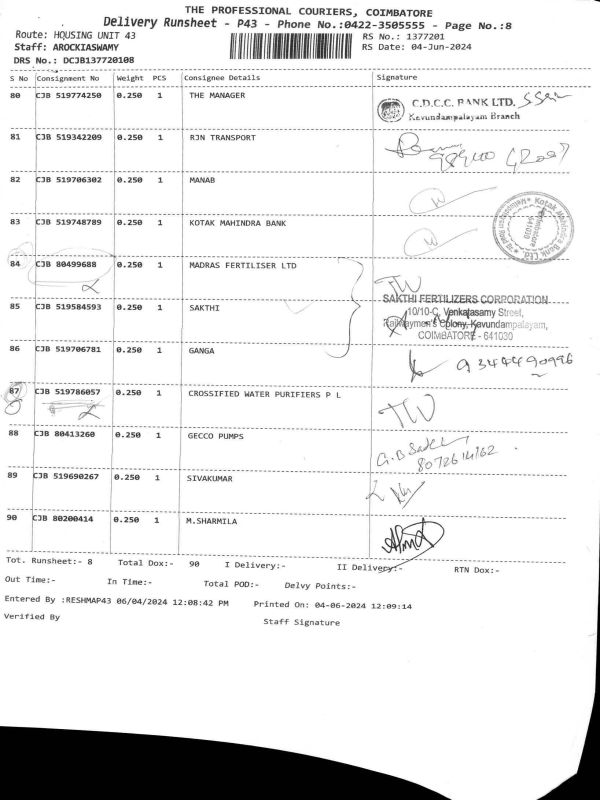 THE PROFESSIONAL COURIERS, COIMBATORE
Delivery Runsheet - P43 - Phone No.:0422-3505555 - Page No.:8
Route: HOUSING UNIT 43
RS No.: 1377201
Staff: AROCKIASWAMY
RS Date: 04-Jun-2024
DRS No.: DCJB137720108
S No Consignment No Weight PCS Consignee Details Signature
80 CJB 519774250 0.250 1 THE MANAGER
C.D.C.C. BANK LTD.
Kavundampalayam Branch
81 CJB 519342209 0.250 1 RJN TRANSPORT
82 CJB 519706302 0.250 1 MANAB
83 CJB 519748789 0.250 1 KOTAK MAHINDRA BANK
Kotak Mahindra Bank Ltd.
Coimbatore
641030
84 CJB 80499688 0.250 1 MADRAS FERTILISER LTD
85 CJB 519584593 0.250 1 SAKTHI
SAKTHI FERTILIZERS CORPORATION
10/10-C, Venkatasamy Street,
Railwaymen's Colony, Kavundampalayam,
COIMBATORE - 641030
86 CJB 519706781 0.250 1 GANGA
9344490996
87 CJB 519786057 0.250 1 CROSSIFIED WATER PURIFIERS P L
88 CJB 80413260 0.250 1 GECCO PUMPS
89 CJB 519690267 0.250 1 SIVAKUMAR
90 CJB 80200414 0.250 1 M.SHARMILA
Tot. Runsheet:- 8 Total Dox:- 90 I Delivery:- II Delivery:- RTN Dox:-
Out Time:- In Time:- Total POD:- Delvy Points:-
Entered By :RESHMAP43 06/04/2024 12:08:42 PM Printed On: 04-06-2024 12:09:14
Verified By Staff Signature